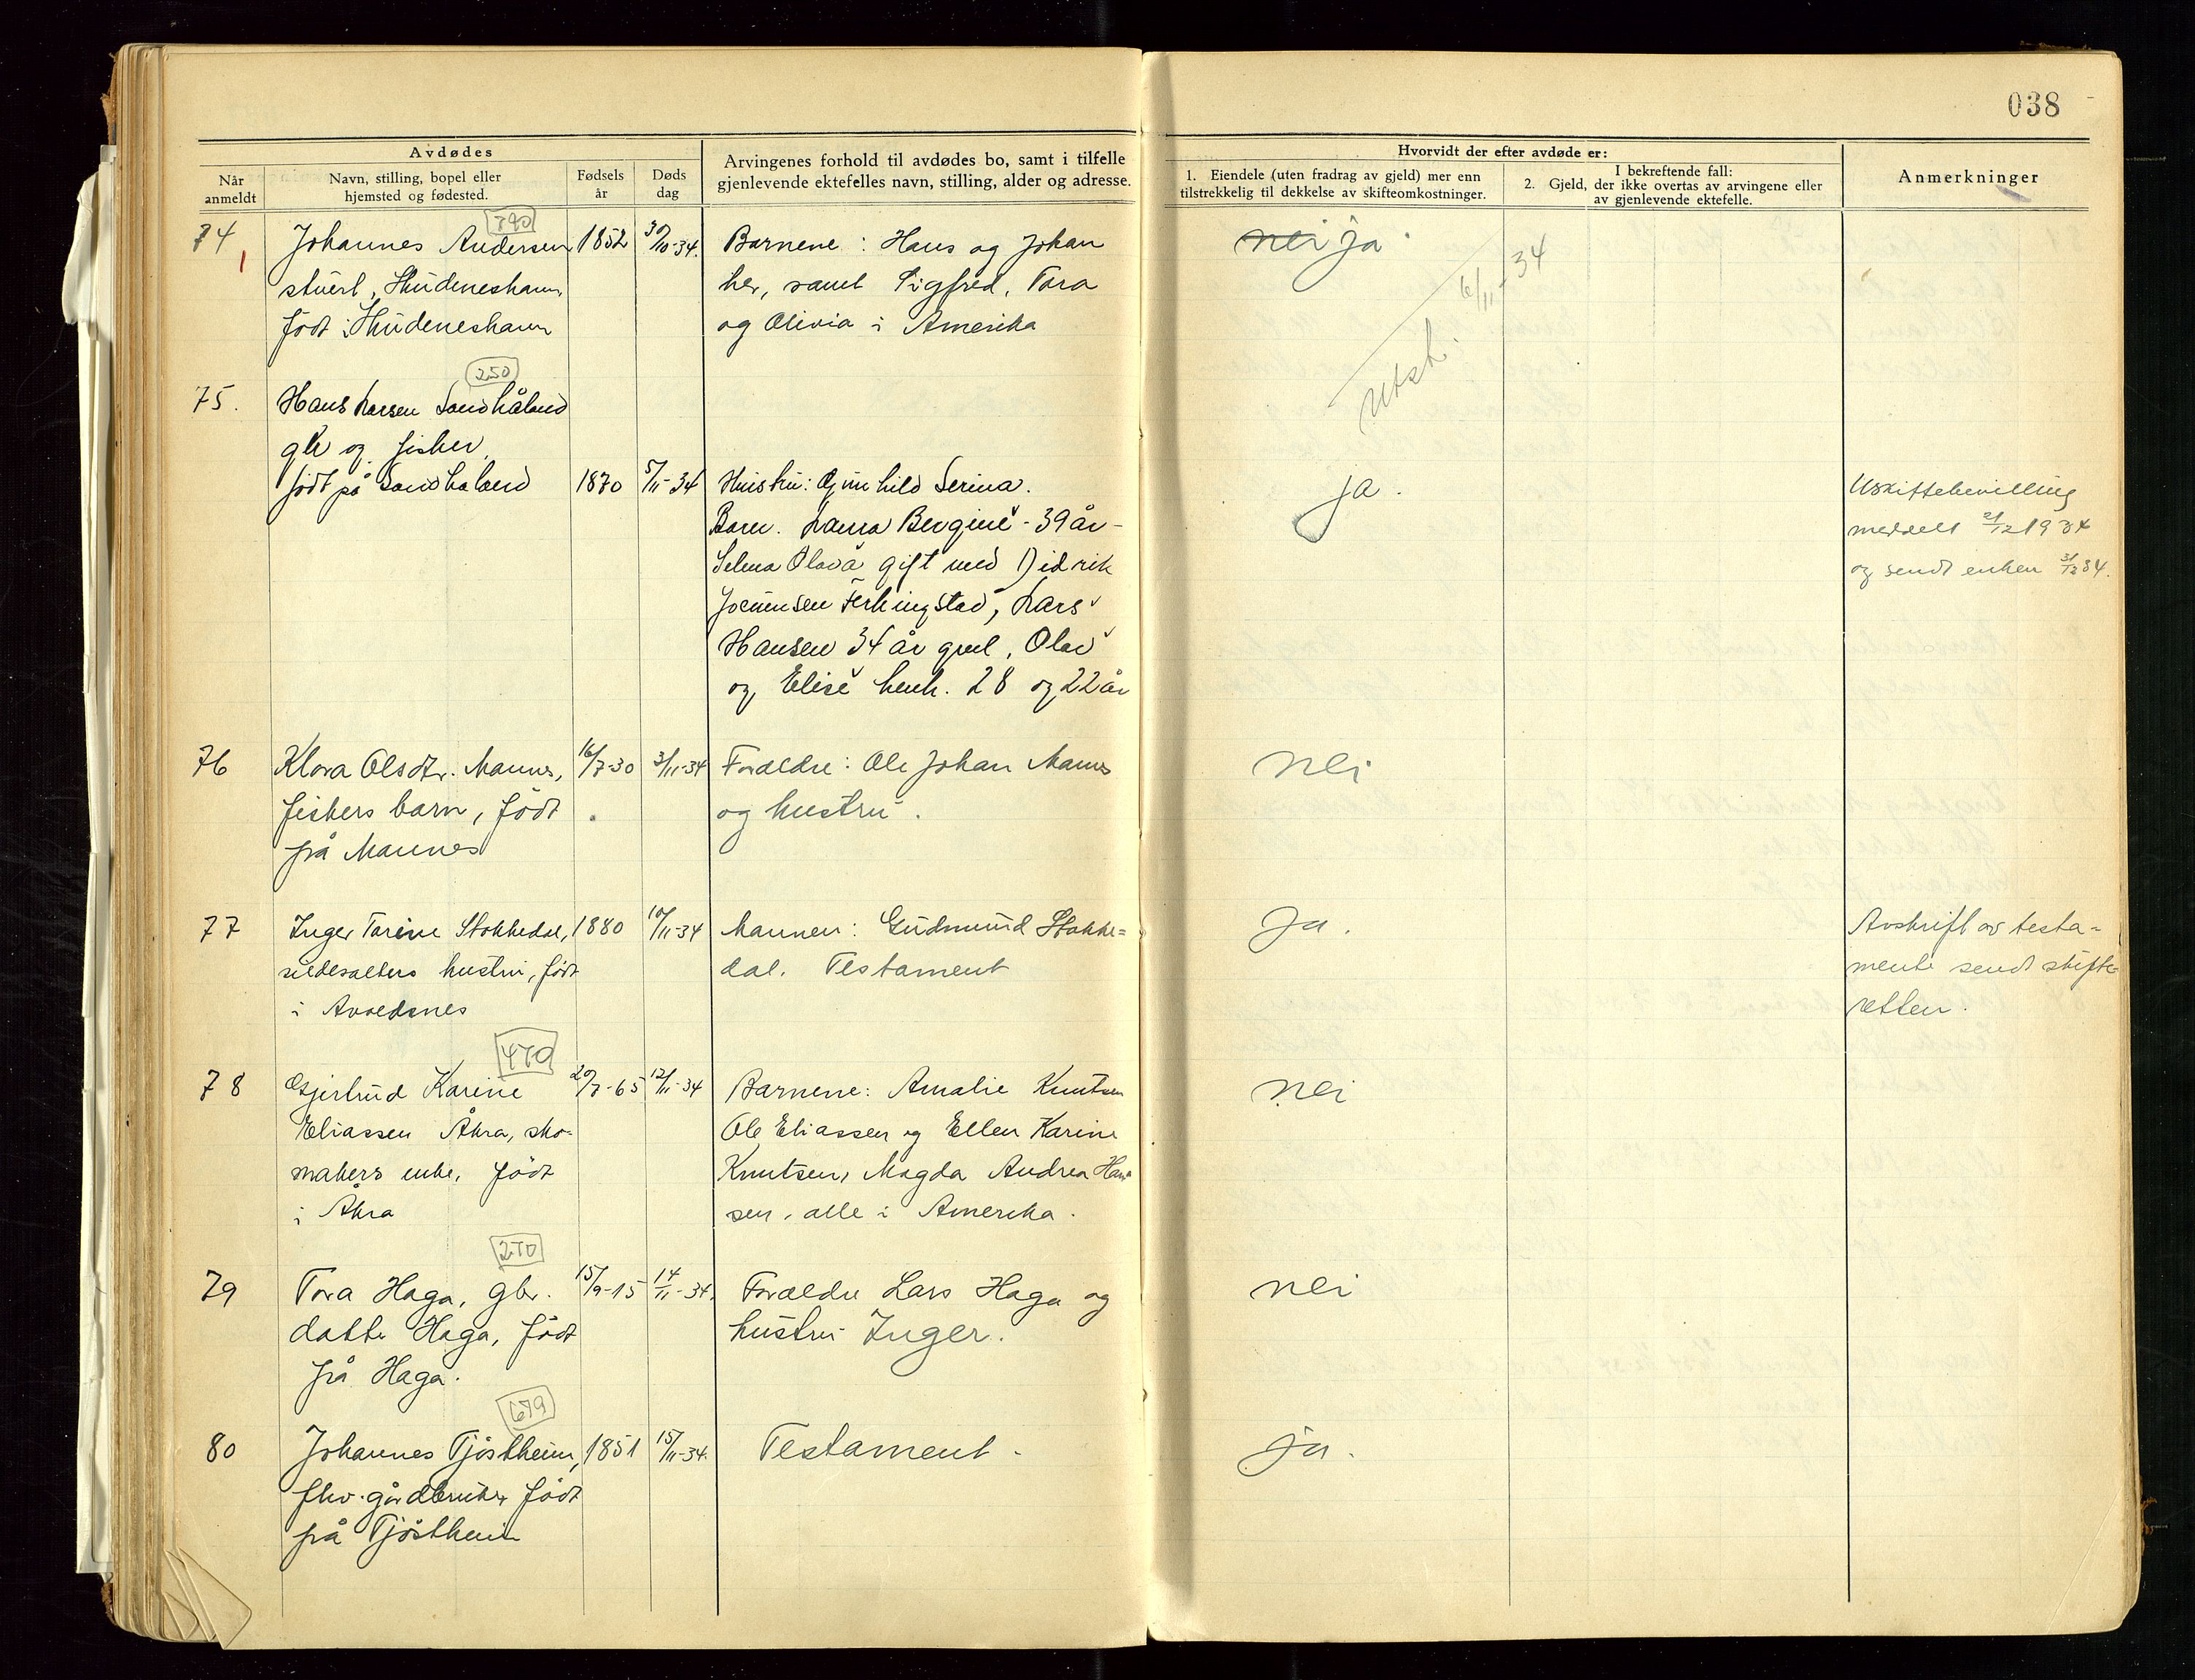 038
Avdødes
Når
anmeldt
Navn, stilling, bopel eller
hjemsted og fødested.
Fødsels
år
Døds
dag
Arvingenes forhold til avdødes bo, samt i tilfelle
gjenlevende ektefelles navn, stilling, alder og adresse.
Hvorvidt der efter avdøde er:
1. Eiendele (uten fradrag av gjeld) mer enn
tilstrekkelig til dekkelse av skifteomkostninger.
I bekreftende fall:
2. Gjeld, der ikke overtas av arvingene eller
av gjenlevende ektefelle.
Anmerkninger
790
74 Johannes Andersen 1852 30/10-34. Barnene: Hans og Johan nei ja
1
stuert, Skudeneshavn her, samt Sigfred, Tora 6/11-34
født i Skudeneshavn og Olivia i Amerika
Utsk.
250
75. Hans Larsen Sandhåland
gbr og fisker,
født på Sandhaland 1870 5/11-34 Hustru: Gunhild Serina. ja. Uskiftebevilling
Barn. Laura Bergine - 39 år - meddelt 21/12 1934
Selma Olava gift med Didrik og sendt enken 31/12 34.
Ferkingstad, Lars
Hansen 34 år gml, Olav
og Elise henh. 28 og 22 år
76 Klara Olsdtr. Mannes, 16/7-30 3/11-34 Foreldre: Ole Johan Mannes nei
fiskers barn, født og hustru.
på Mannes
77 Inger Torine Stokkedal, 1880 10/11-34 Mannen: Gudmund Stokke= ja. Avskrift av testa-
sildesalters hustru, født dal. Testament mente sendt skifte-
i Avaldsnes retten.
470
78 Gjertrud Karine 20/7-65 12/11-34 Barnene: Amalie Knutsen nei
Eliassen Åkra, sko- Ole Eliassen og Ellen Karine
makers enke, født Knutsen, Magda Andrea Han-
i Åkra sen, alle i Amerika.
270
79 Tora Haga, gbr. 15/9-15 14/11-34. Foreldre Lars Haga og nei
datter Haga, født hustru Inger.
på Haga.
679
80 Johannes Tjøstheim, 1851 15/11-34. Testament. ja.
fhv. gårdbruker født
på Tjøstheim